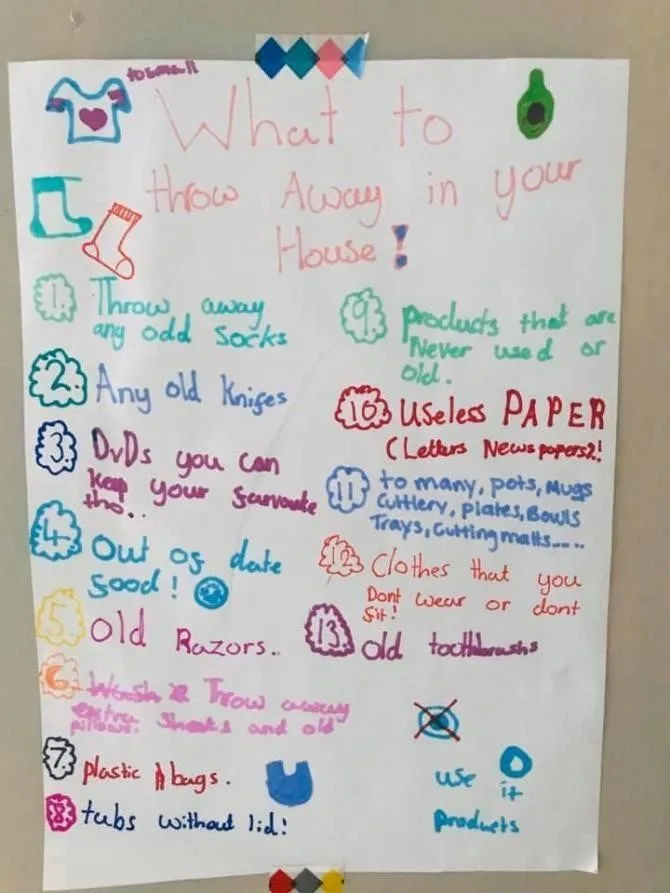 to small
What to
throw Away in your
House!
1. Throw away
any odd socks
2. Any old Knifes
3. DvDs you can
keep your favrouate
tho..
4. Out of date
food!
5. old Razors..
6. Wash & Throw away
extra sheets and old
pillows.
7. plastic bags.
8. tubs without lid!
9. products that are
Never used or
old.
10. useless PAPER
(Letters Newspapers)!
11. to many, pots, Mugs
Cuttlery, plates, Bowls
Trays, Cutting matts.....
12. Clothes that you
Dont wear or dont
fit!
13. old toothbrushs
use it
products